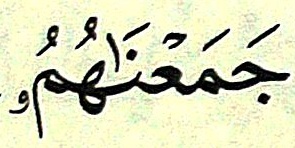 جَمَعۡنَٰهُمُۥ